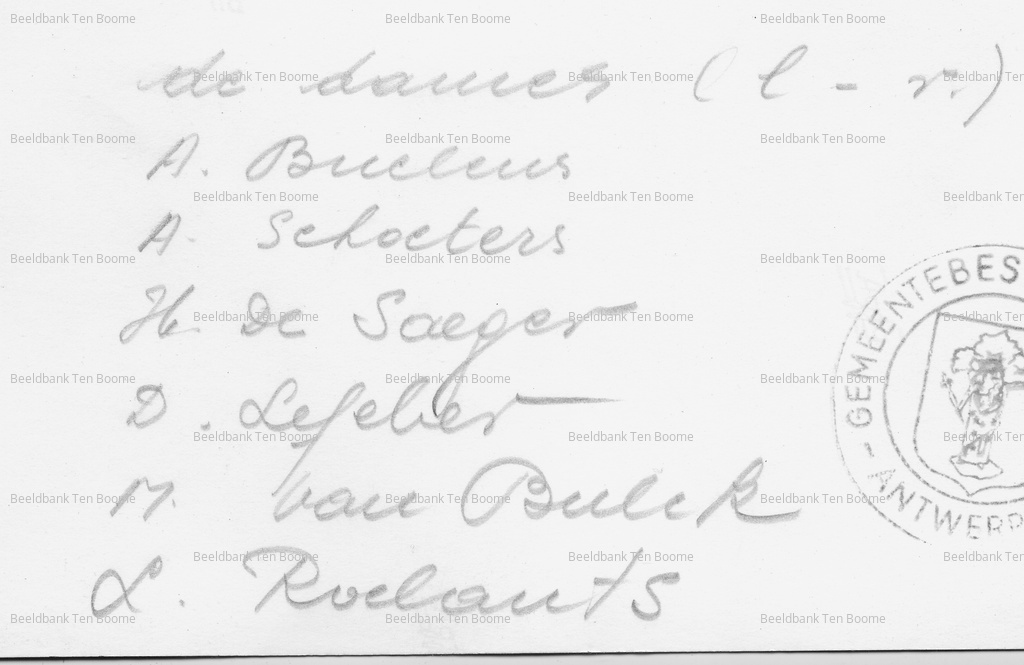 de dames (l - r.)
A. Buelens
A. Schoeters
H. De Saeger
D. Lefeber
M. Van Bulck
L. Roelants
- GEMEENTEBES
ANTWERP
Beeldbank Ten Boome